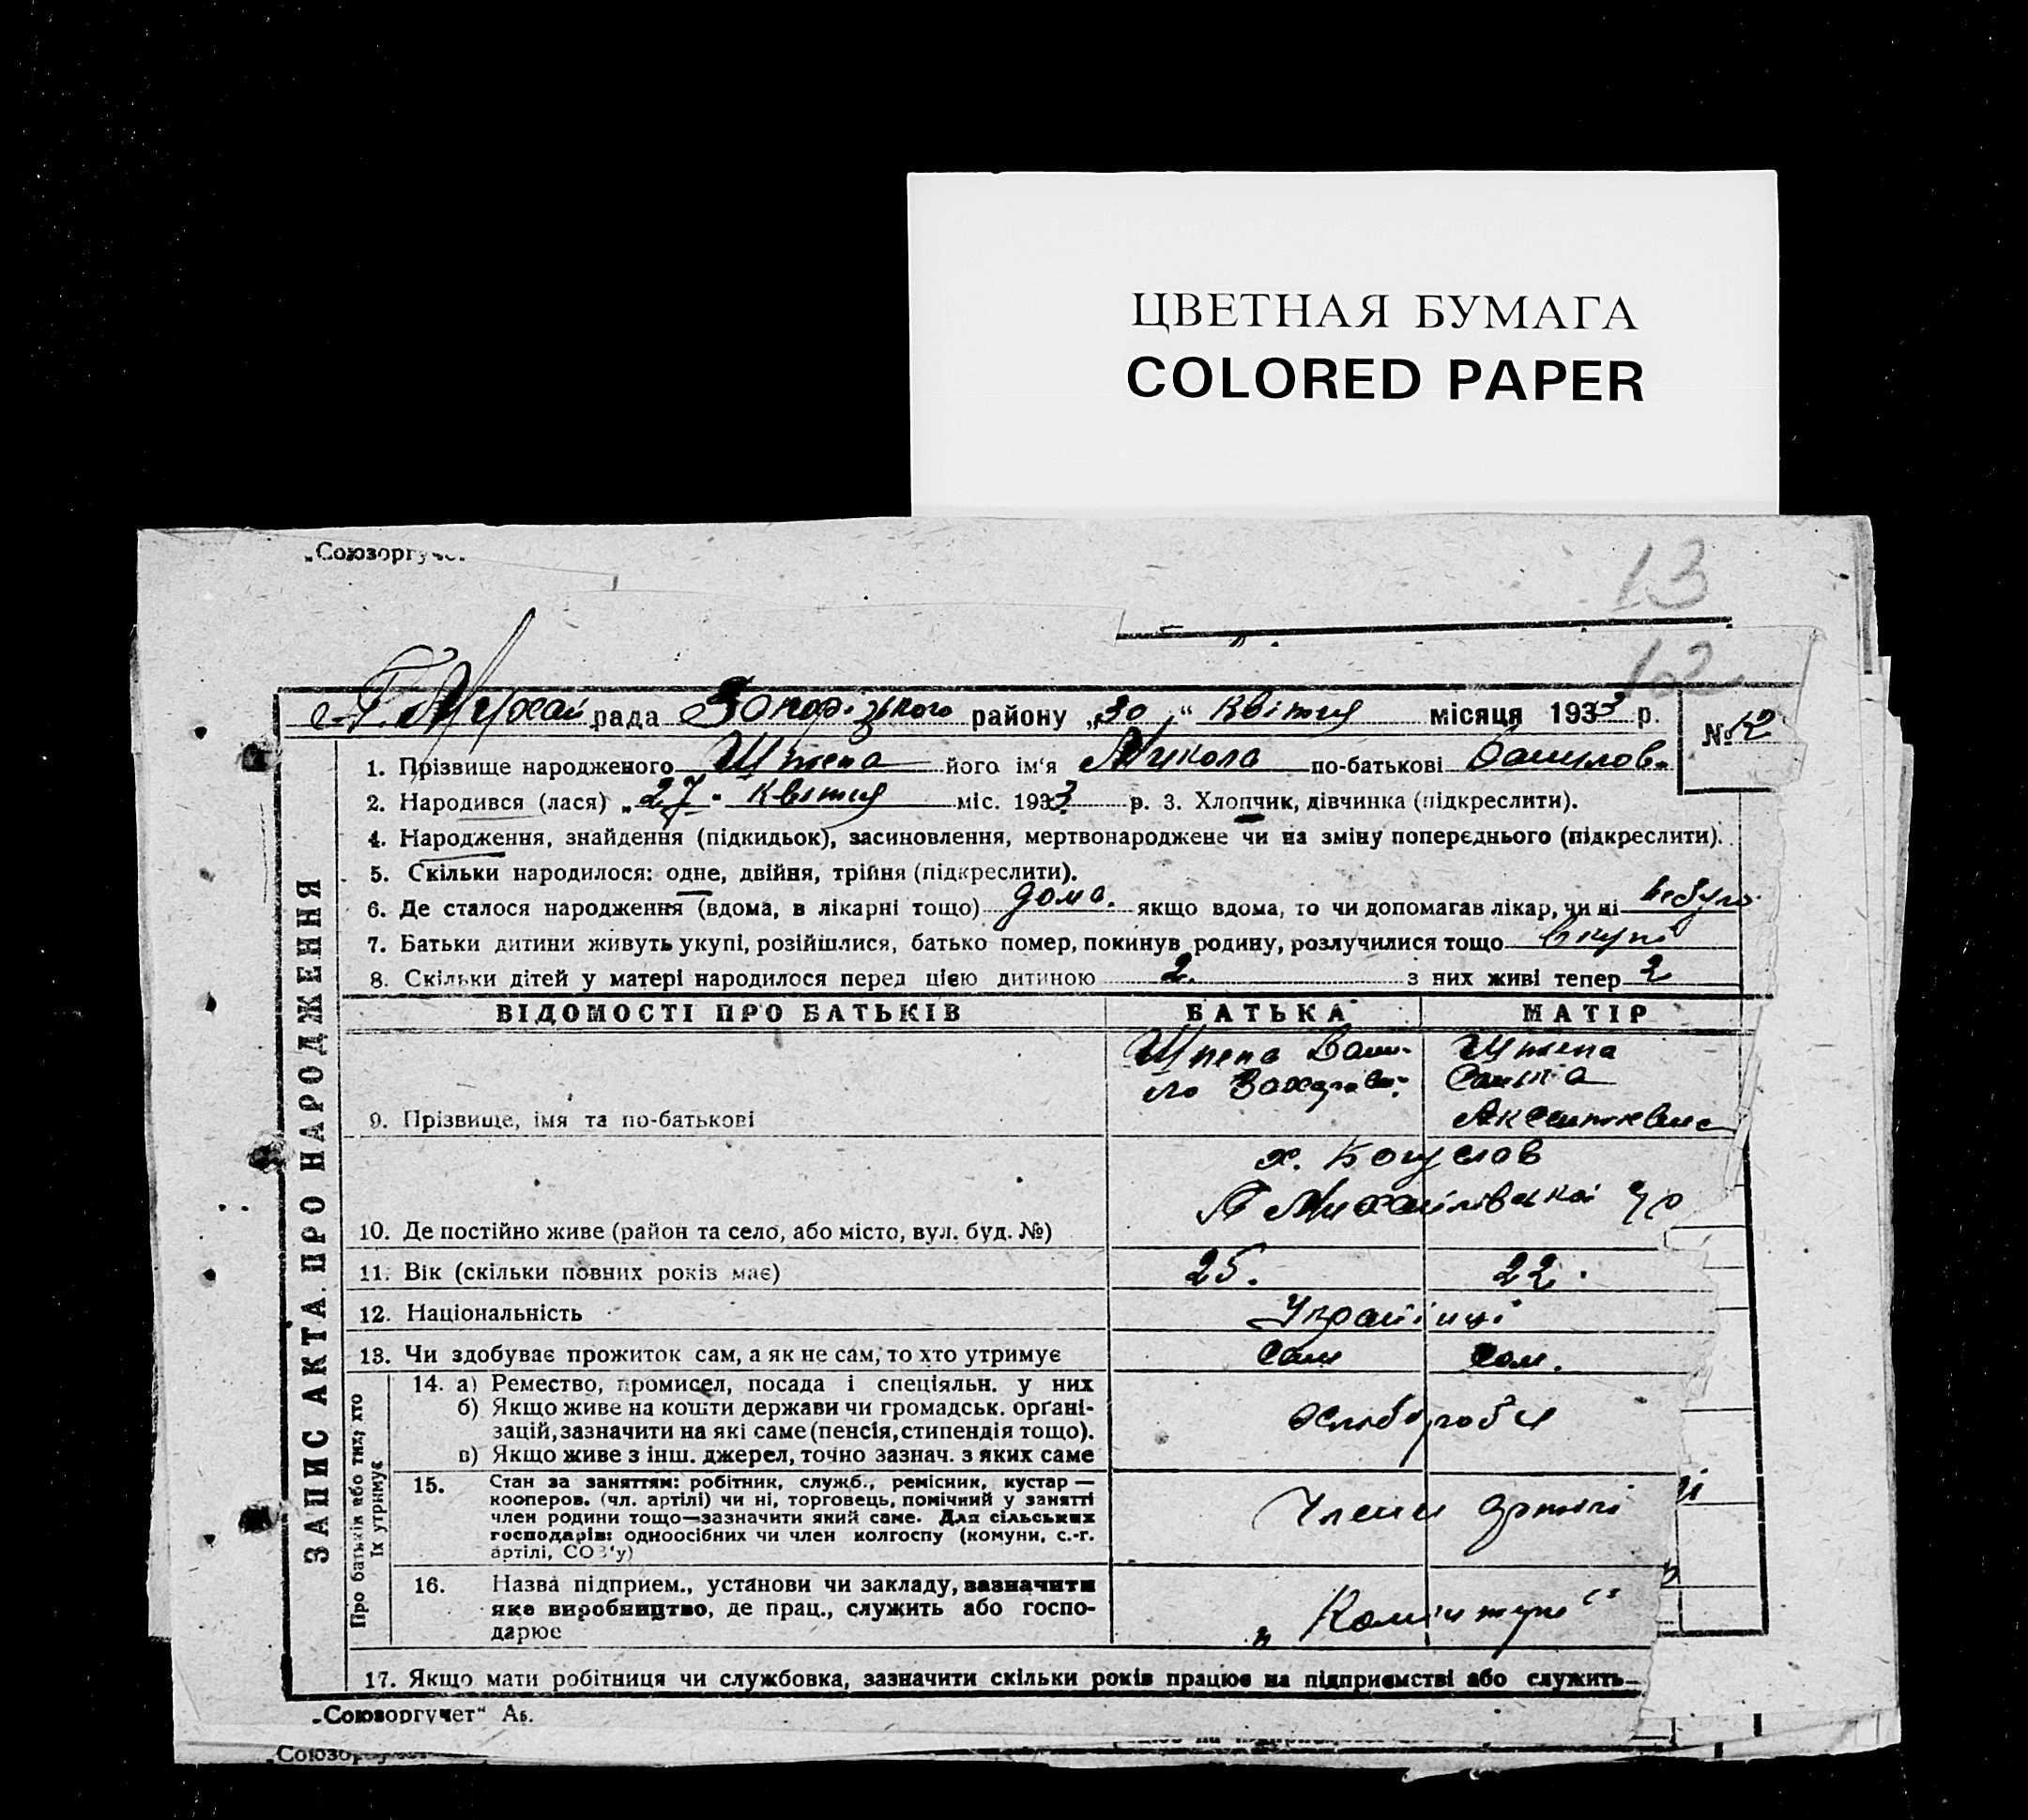 ЦВЕТНАЯ БУМАГА
COLORED PAPER
„Союзоргуче
13
12
рада Запорізького району „30“ квітня місяця 1933 р.
№ 12
1. Прізвище народженого Штепа його ім‘я Микола по-батькові Василов.
2. Народився (лася) „27“ квітня міс. 1933 р. 3. Хлопчик, дівчинка (підкреслити).
4. Народження, знайдення (підкидьок), засиновлення, мертвонароджене чи на зміну попереднього (підкреслити).
5. Скільки народилося: одне, двійня, трійня (підкреслити).
6. Де сталося народження (вдома, в лікарні тощо) дома. якщо вдома, то чи допомагав лікар, чи ні небуло
7. Батьки дитини живуть укупі, розійшлися, батько помер, покинув родину, розлучилися тощо вкупі
8. Скільки дітей у матері народилося перед цією дитиною 2. з них живі тепер 2
ЗАПИС АКТА ПРО НАРОДЖЕННЯ
ВІДОМОСТІ ПРО БАТЬКІВ БАТЬКА МАТІР
9. Прізвище, імя та по-батькові
Штепа Васи-
ло Захарів.
Штепа
10. Де постійно живе (район та село, або місто, вул. буд. №)
х.
Михайлівської
11. Вік (скільки повних років має) 25. 22.
12. Національність Українці
13. Чи здобуває прожиток сам, а як не сам, то хто утримує сам сам.
Про батьків або тих, хто
їх утримує
14. а) Ремество, промисел, посада і спеціяльн. у них
б) Якщо живе на кошти держави чи громадськ. орґані-
зацій, зазначити на які саме (пенсія, стипендія тощо).
в) Якщо живе з інш. джерел, точно зазнач. з яких саме
хлібороби
15. Стан за заняттям: робітник, служб., ремісник, кустар —
кооперов. (чл. артілі) чи ні, торговець, помічний у занятті
член родини тощо—зазначити який саме. Для сільських
господарів: одноосібних чи член колгоспу (комуни, с.-г.
артілі, СОЗ‘у)
Члени артілі
16. Назва підприєм., установи чи закладу, зазначити
яке виробництво, де прац., служить або госпо-
дарює
„Комінтерн“
17. Якщо мати робітниця чи службовка, зазначити скільки років працює на підприємстві або служить
„Союзоргучет“ Аб.
„Союзоргучет